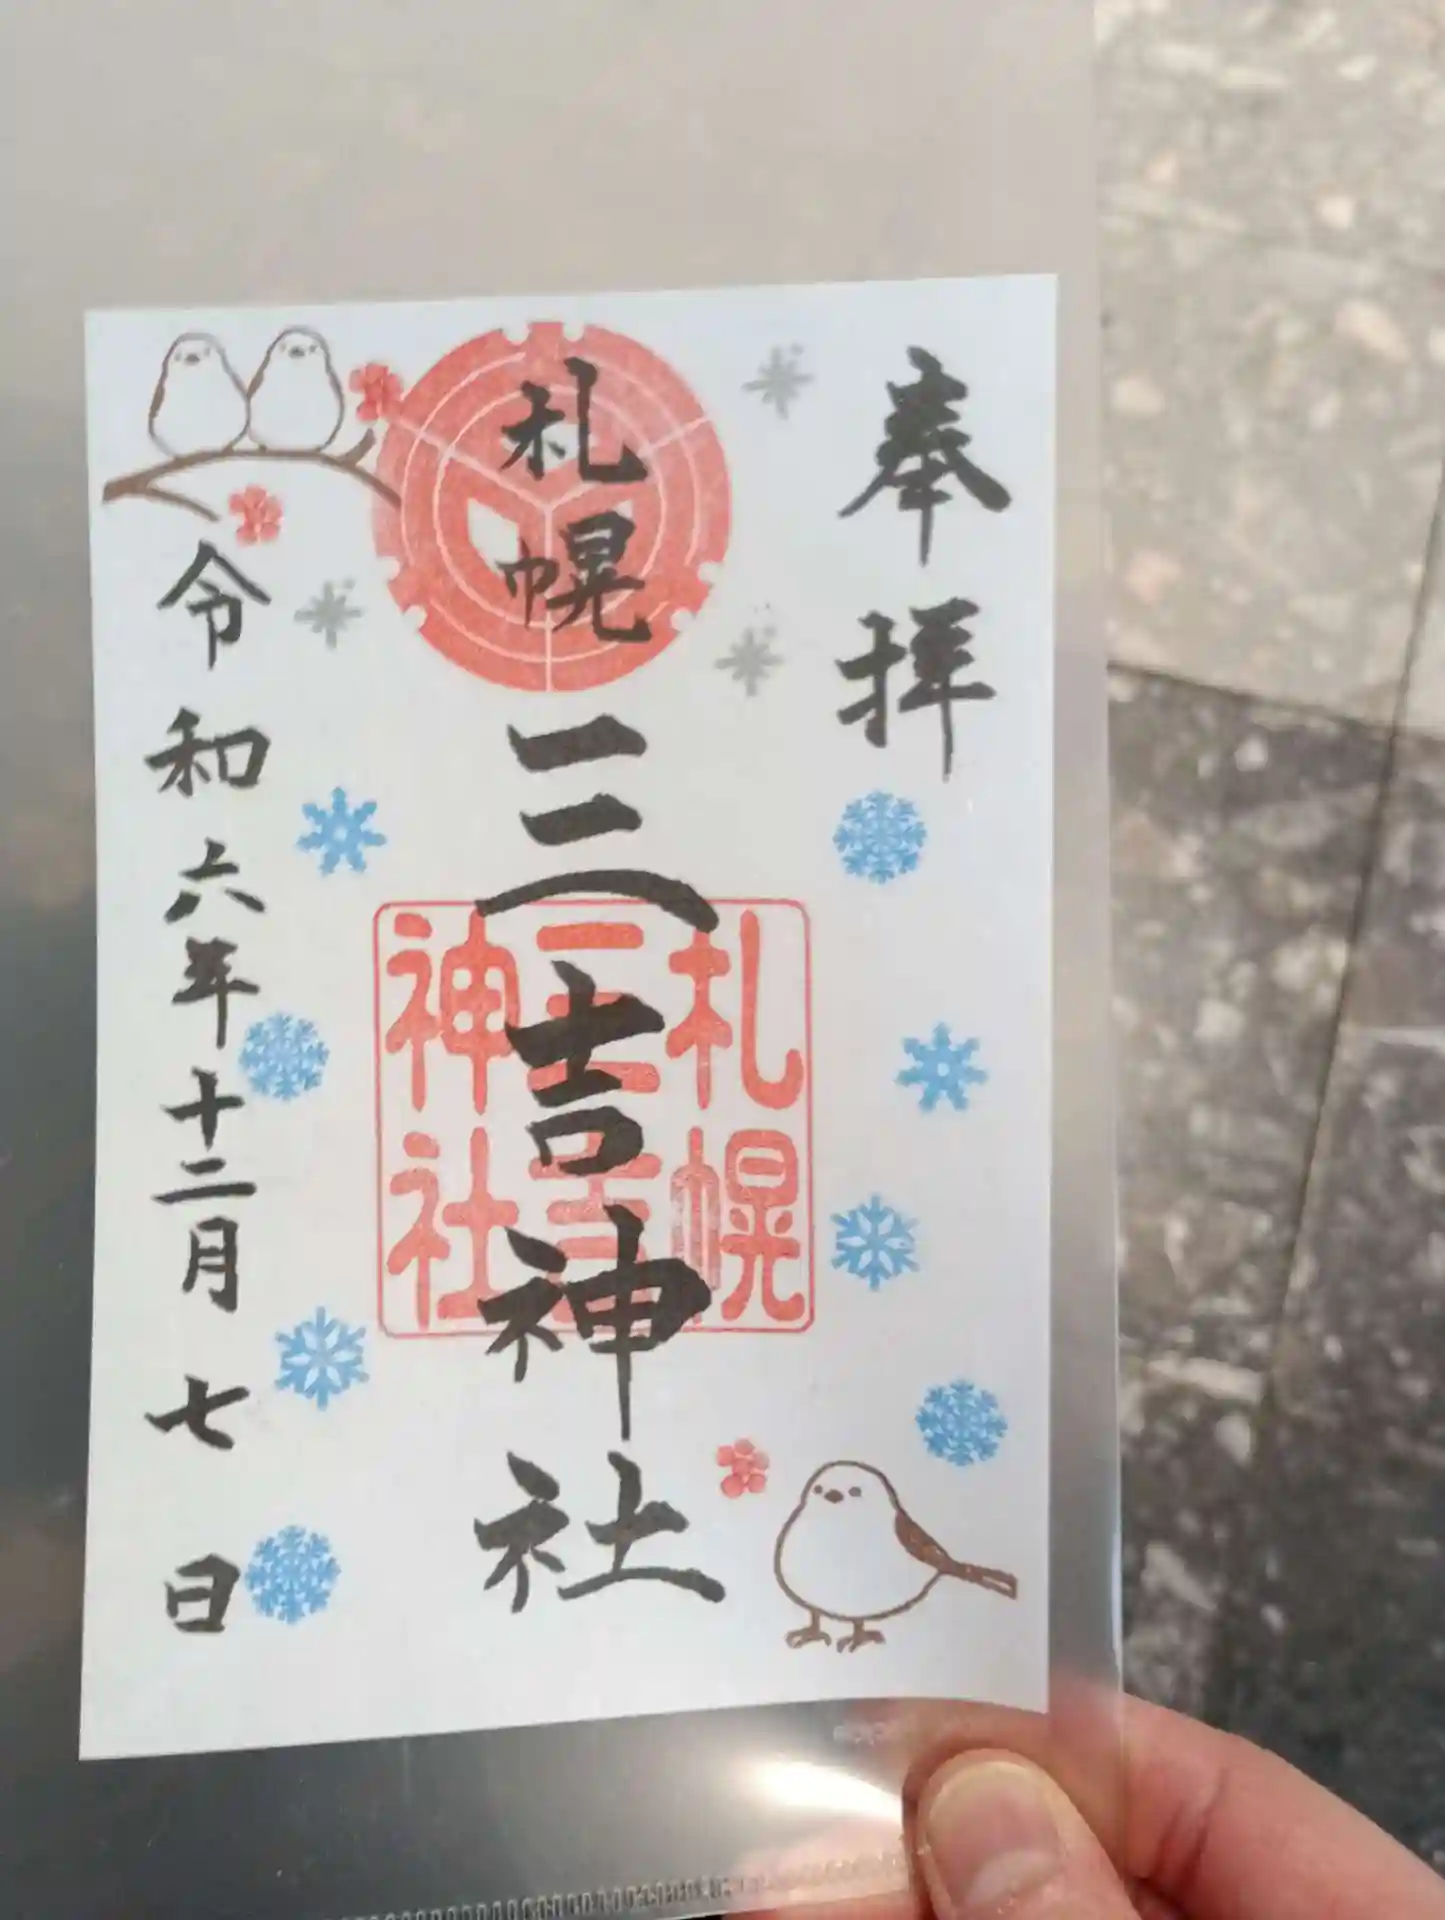 奉拝
札幌三吉神社
札幌
三吉
神社
令和六年十二月七日